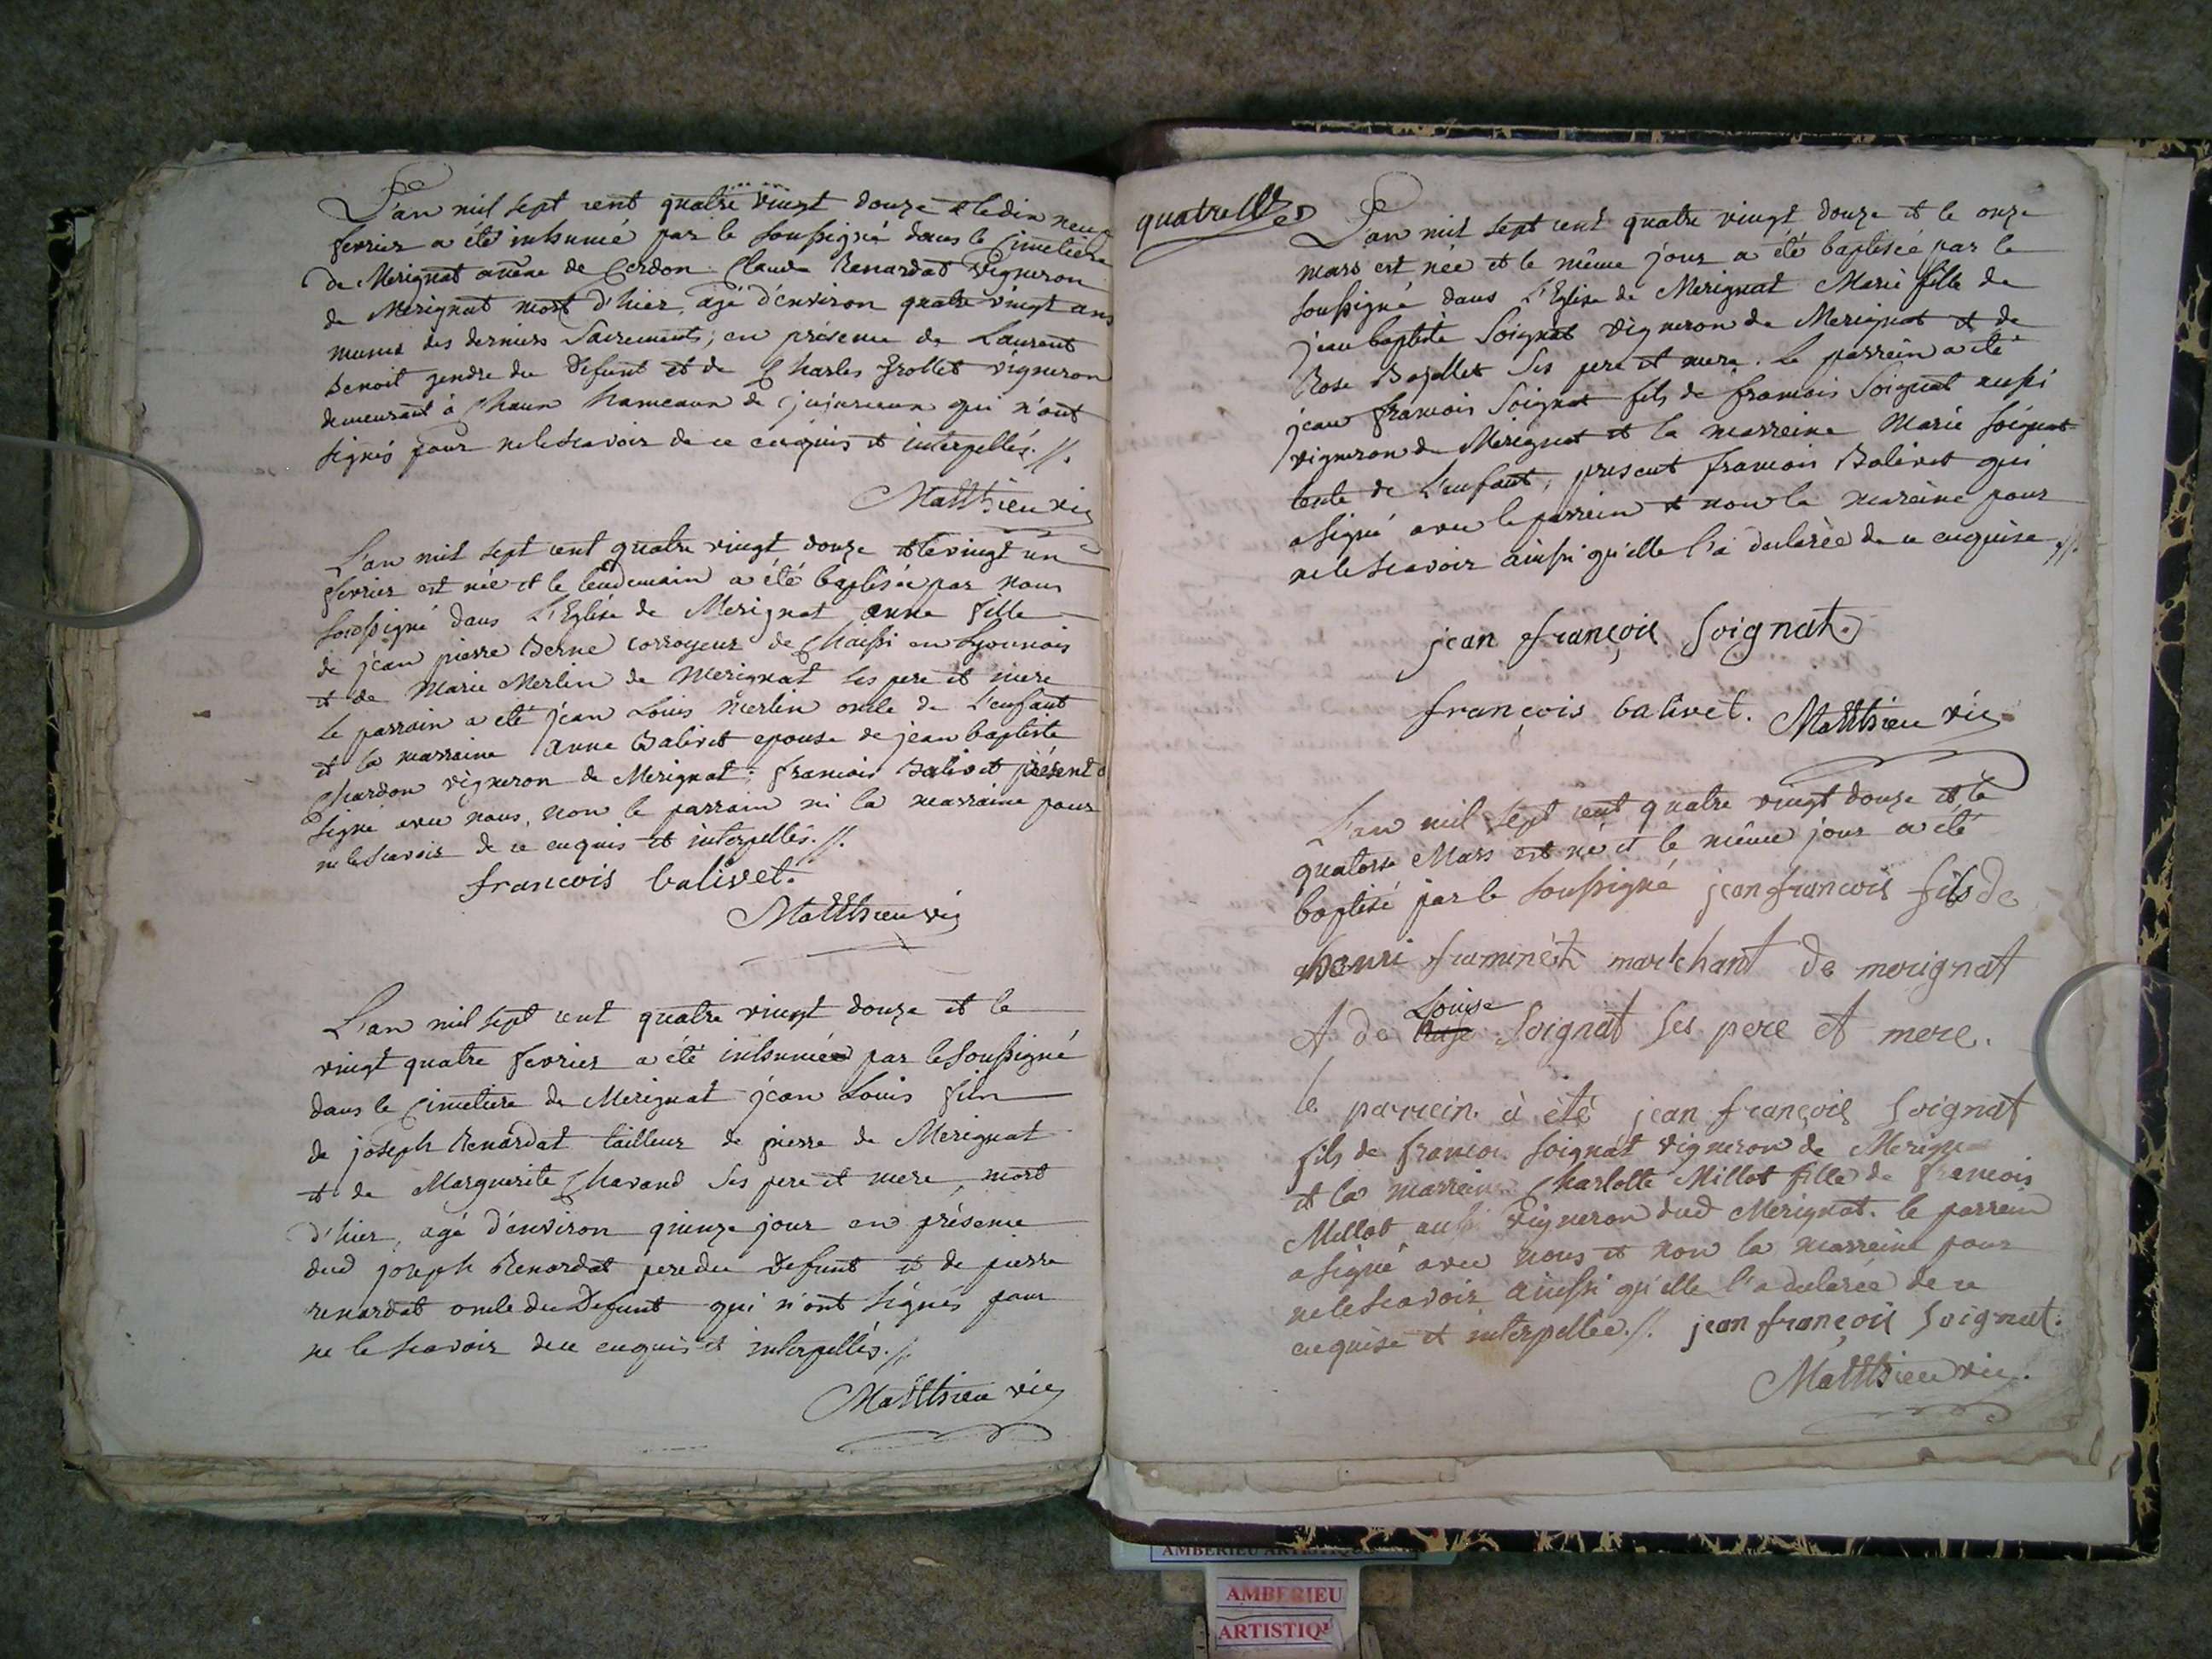 L'an mil sept cent quatre vingt douze et le dix neuf
fevrier a été inhumé par le soussigné dans le Cimetiere
de Merignat annexe de Cerdon Claude Renardat vigneron
de Merignat mort d'hier, agé d'environ quatre vingt ans
munis des derniers Sacrements; en présence de Laurent
Benoit gendre du Defunt et de Charles vigneron
demeurant à hameaux de jujurieux qui n'ont
signés pour ne le scavoir de ce enquis et interpellés.//.
Matthieu vic
L'an mil sept cent quatre vingt douze et le vingt un
fevrier est née et le lendemain a été baptisée par nous
soussigné dans L'Eglise de Merignat anne fille
de jean pierre Berne corroyeur de en Lyonnois
et de Marie Merlin de Merignat ses pere et mere
le parrain a eté jean Louis Merlin oncle de L'enfant
et la marraine anne Balivet epouse de jean baptiste
Chardon vigneron de Merignat; francois Balivet présent a
signé avec nous, non le parrain ni la marraine pour
ne le scavoir de ce enquis et interpellés.//.
francois balivet.
Matthieu vic
L'an mil sept cent quatre vingt douze et le
vingt quatre fevrier a été inhumé par le soussigné
dans le Cimetiere de Merignat jean Louis fils
de joseph Renardat tailleur de pierre de Merignat
et de Marguerite Chavand ses pere et mere, mort
d'hier, agé d'environ quinze jour en présence
dud joseph Renardat pere du defunt et de pierre
renardat oncle du Defunt qui n'ont signés pour
ne le scavoir de ce enquis et interpellés.//.
Matthieu vic
quatre
L'an mil sept cent quatre vingt douze et le onze
mars est née et le même jour a été baptisée par le
soussigné dans L'Eglise de Merignat Marie fille de
jean baptiste Soignat vigneron de Merignat et de
Rose Bozellet ses pere et mere. Le parrein a eté
jean francois Soignat fils de francois Soignat aussi
vigneron de Merignat et la marreine Marie Soignat
tente de L'enfant; present francois Balivet qui
a signé avec le parrein et non la mareine pour
ne le scavoir ainsi qu'elle l'a declarée de ce enquise.//.
jean françois Soignat.
françois balivet. Matthieu vic
L'an mil sept cent quatre vingt douze et le
quatorse Mars est né et le même jour a eté
baptisé par le soussigné jean francois fils de
henri marchant de merignat
et de Louise Soignat ses pere et mere.
le parrein à èté jean françois Soignat
fils de francois Soignat vigneron de Merignat
et la marreine Charlotte Millot fille de francois
Millot aussi vigneron dud Merignat. le parrein
a signé avec nous et non la marreine pour
ne le scavoir ainssi qu'elle l'a declarée de ce
enquise et interpellée.//. jean françois Soignat.
Matthieu vic.
AMBERIEU
AMBERIEU
ARTISTIQ